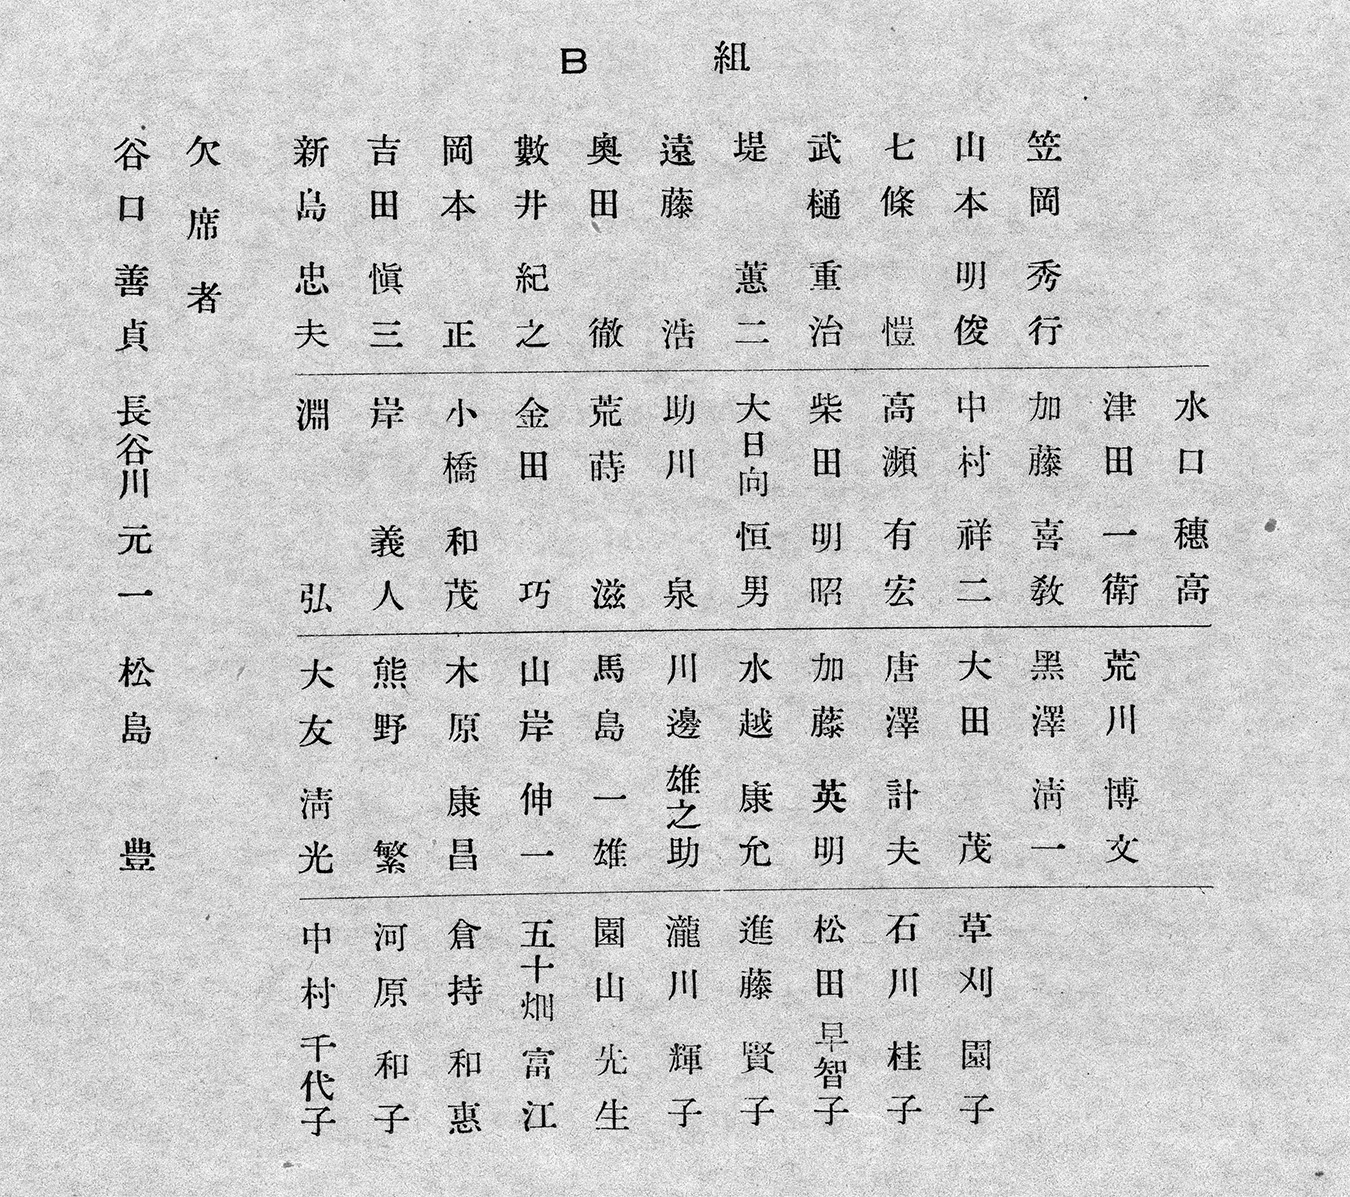 B 組
笠岡秀行
山本明俊
七條愷
武樋重治
堤蕙二
遠藤浩
奥田徹
數井紀之
岡本正
吉田愼三
新島忠夫
水口穗高
津田一衛
加藤喜敎
中村祥二
高瀬有宏
柴田明昭
大日向恒男
助川泉
荒蒔滋
金田巧
小橋和茂
岸義人
淵弘
荒川博文
黑澤淸一
大田茂
唐澤計夫
加藤英明
水越康允
川邊雄之助
馬島一雄
山岸伸一
木原康昌
熊野繁
大友淸光
草刈園子
石川桂子
松田早智子
進藤賢子
瀧川輝子
園山先生
五十畑富江
倉持和惠
河原和子
中村千代子
欠席者
谷口善貞
長谷川元一
松島豊